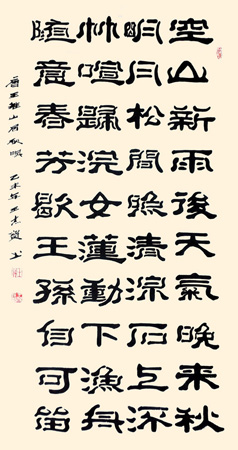 空山新雨後天氣晚來秋
明月松間照清泉石上流
竹喧歸浣女蓮動下漁舟
隨意春芳歇王孫自可留
唐王維山居秋暝 乙未年